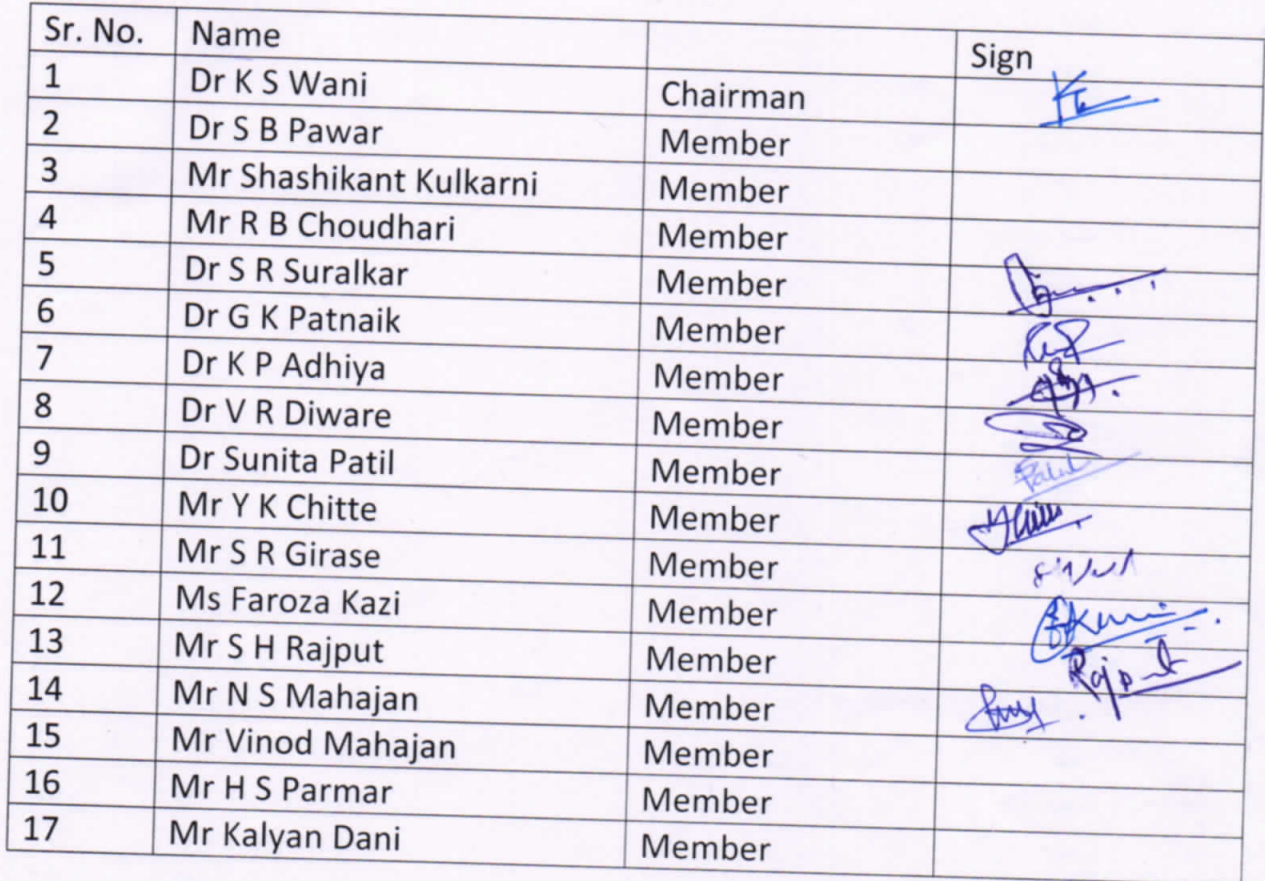 Sr. No. Name Sign
1 Dr K S Wani Chairman
2 Dr S B Pawar Member
3 Mr Shashikant Kulkarni Member
4 Mr R B Choudhari Member
5 Dr S R Suralkar Member
6 Dr G K Patnaik Member
7 Dr K P Adhiya Member
8 Dr V R Diware Member
9 Dr Sunita Patil Member
10 Mr Y K Chitte Member
11 Mr S R Girase Member
12 Ms Faroza Kazi Member
13 Mr S H Rajput Member Rajput
14 Mr N S Mahajan Member
15 Mr Vinod Mahajan Member
16 Mr H S Parmar Member
17 Mr Kalyan Dani Member